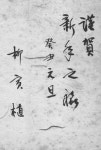 謹賀
新年之禧
癸丑元旦
柳寅植